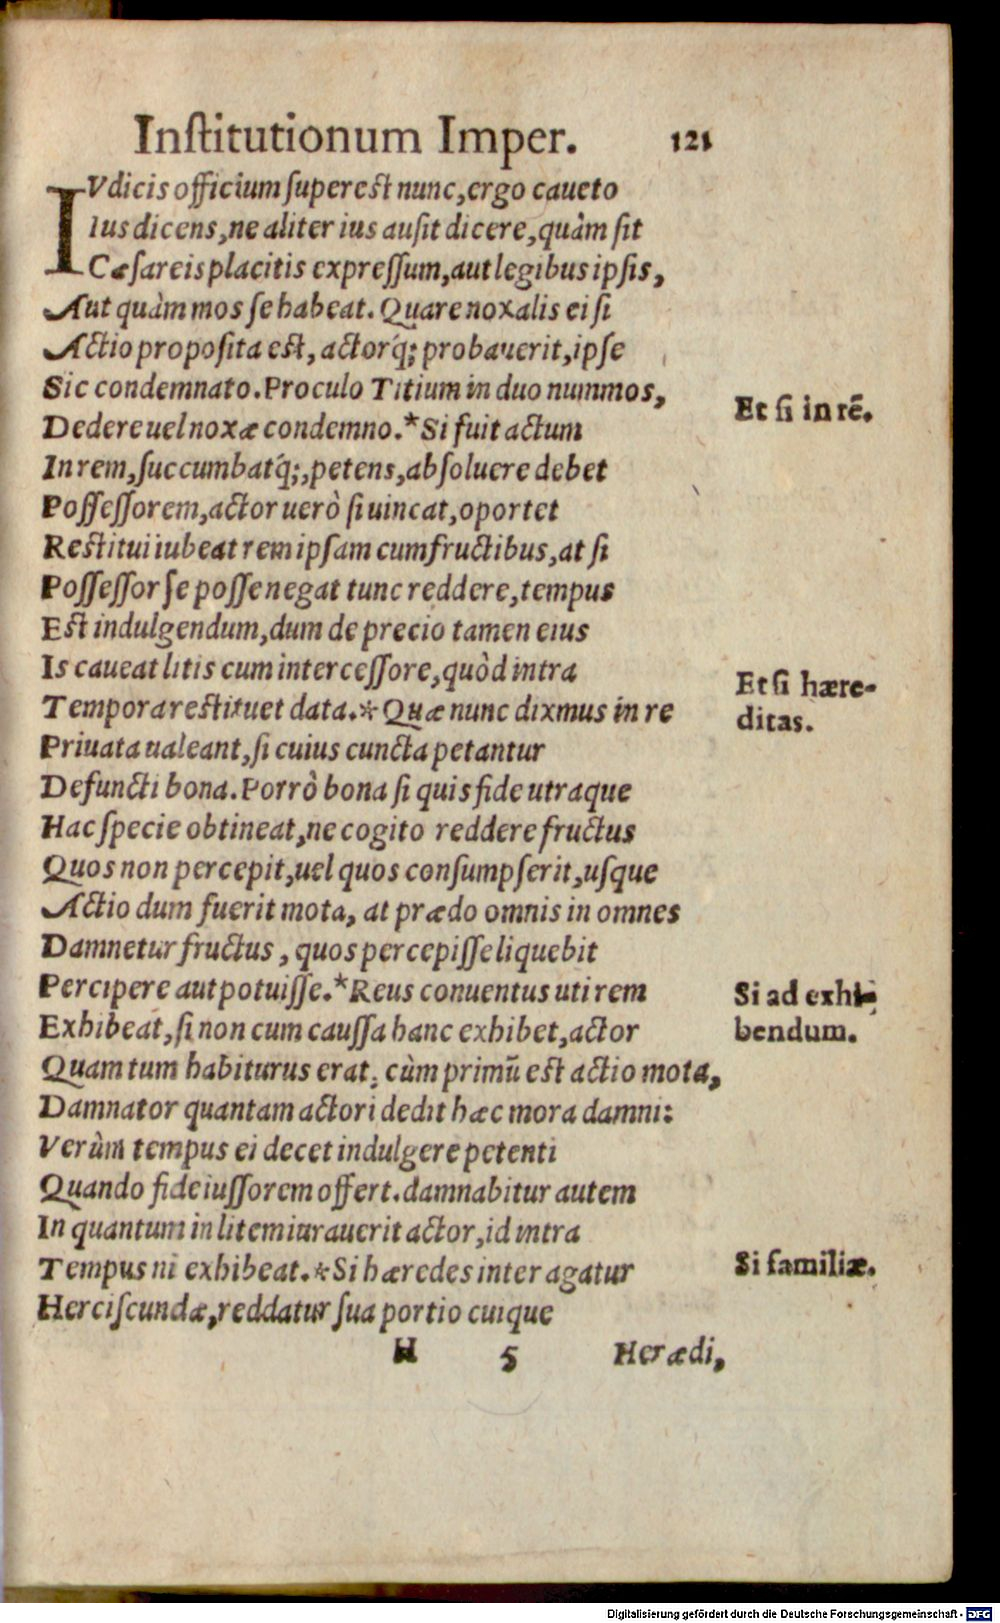 Inſtitutionum Imper. 121
IVdicis officium ſupereſt nunc, ergo caueto
Ius dicens, ne aliter ius auſit dicere, quàm ſit
Cæſareis placitis expreſſum, aut legibus ipſis,
Aut quàm mos ſe habeat. Quare noxalis ei ſi
Actio propoſita eſt, actorq́; probauerit, ipſe
Sic condemnato. Proculo Titium in duo nummos,
Dedere uel noxæ condemno.* Si fuit actum
Et ſi in rē.
In rem, ſuccumbatq́;, petens, abſoluere debet
Poſſeſſorem, actor uerò ſi uincat, oportet
Reſtitui iubeat rem ipſam cum fructibus, at ſi
Poſſeſſor ſe poſſe negat tunc reddere, tempus
Eſt indulgendum, dum de precio tamen eius
Is caueat litis cum interceſſore, quòd intra
Tempora reſtituet data.* Quæ nunc diximus in re
Et ſi hære-
ditas.
Priuata ualeant, ſi cuius cuncta petantur
Defuncti bona. Porrò bona ſi quis fide utraque
Hac ſpecie obtineat, ne cogito reddere fructus
Quos non percepit, uel quos conſumpſerit, uſque
Actio dum fuerit mota, at prædo omnis in omnes
Damnetur fructus, quos percepiſſe liquebit
Percipere aut potuiſſe.* Reus conuentus uti rem
Si ad exhi-
bendum.
Exhibeat, ſi non cum cauſſa hanc exhibet, actor
Quam tum habiturus erat, cùm primū eſt actio mota,
Damnator quantam actori dedit hæc mora damni:
Verùm tempus ei decet indulgere petenti
Quando fideiuſſorem offert. damnabitur autem
In quantum in litem iurauerit actor, id intra
Tempus ni exhibeat.* Si hæredes inter agatur
Si familiæ.
Herciſcundæ, reddatur ſua portio cuique
H 5 Heræedi,
Digitalisierung gefördert durch die Deutsche Forschungsgemeinschaft - DFG